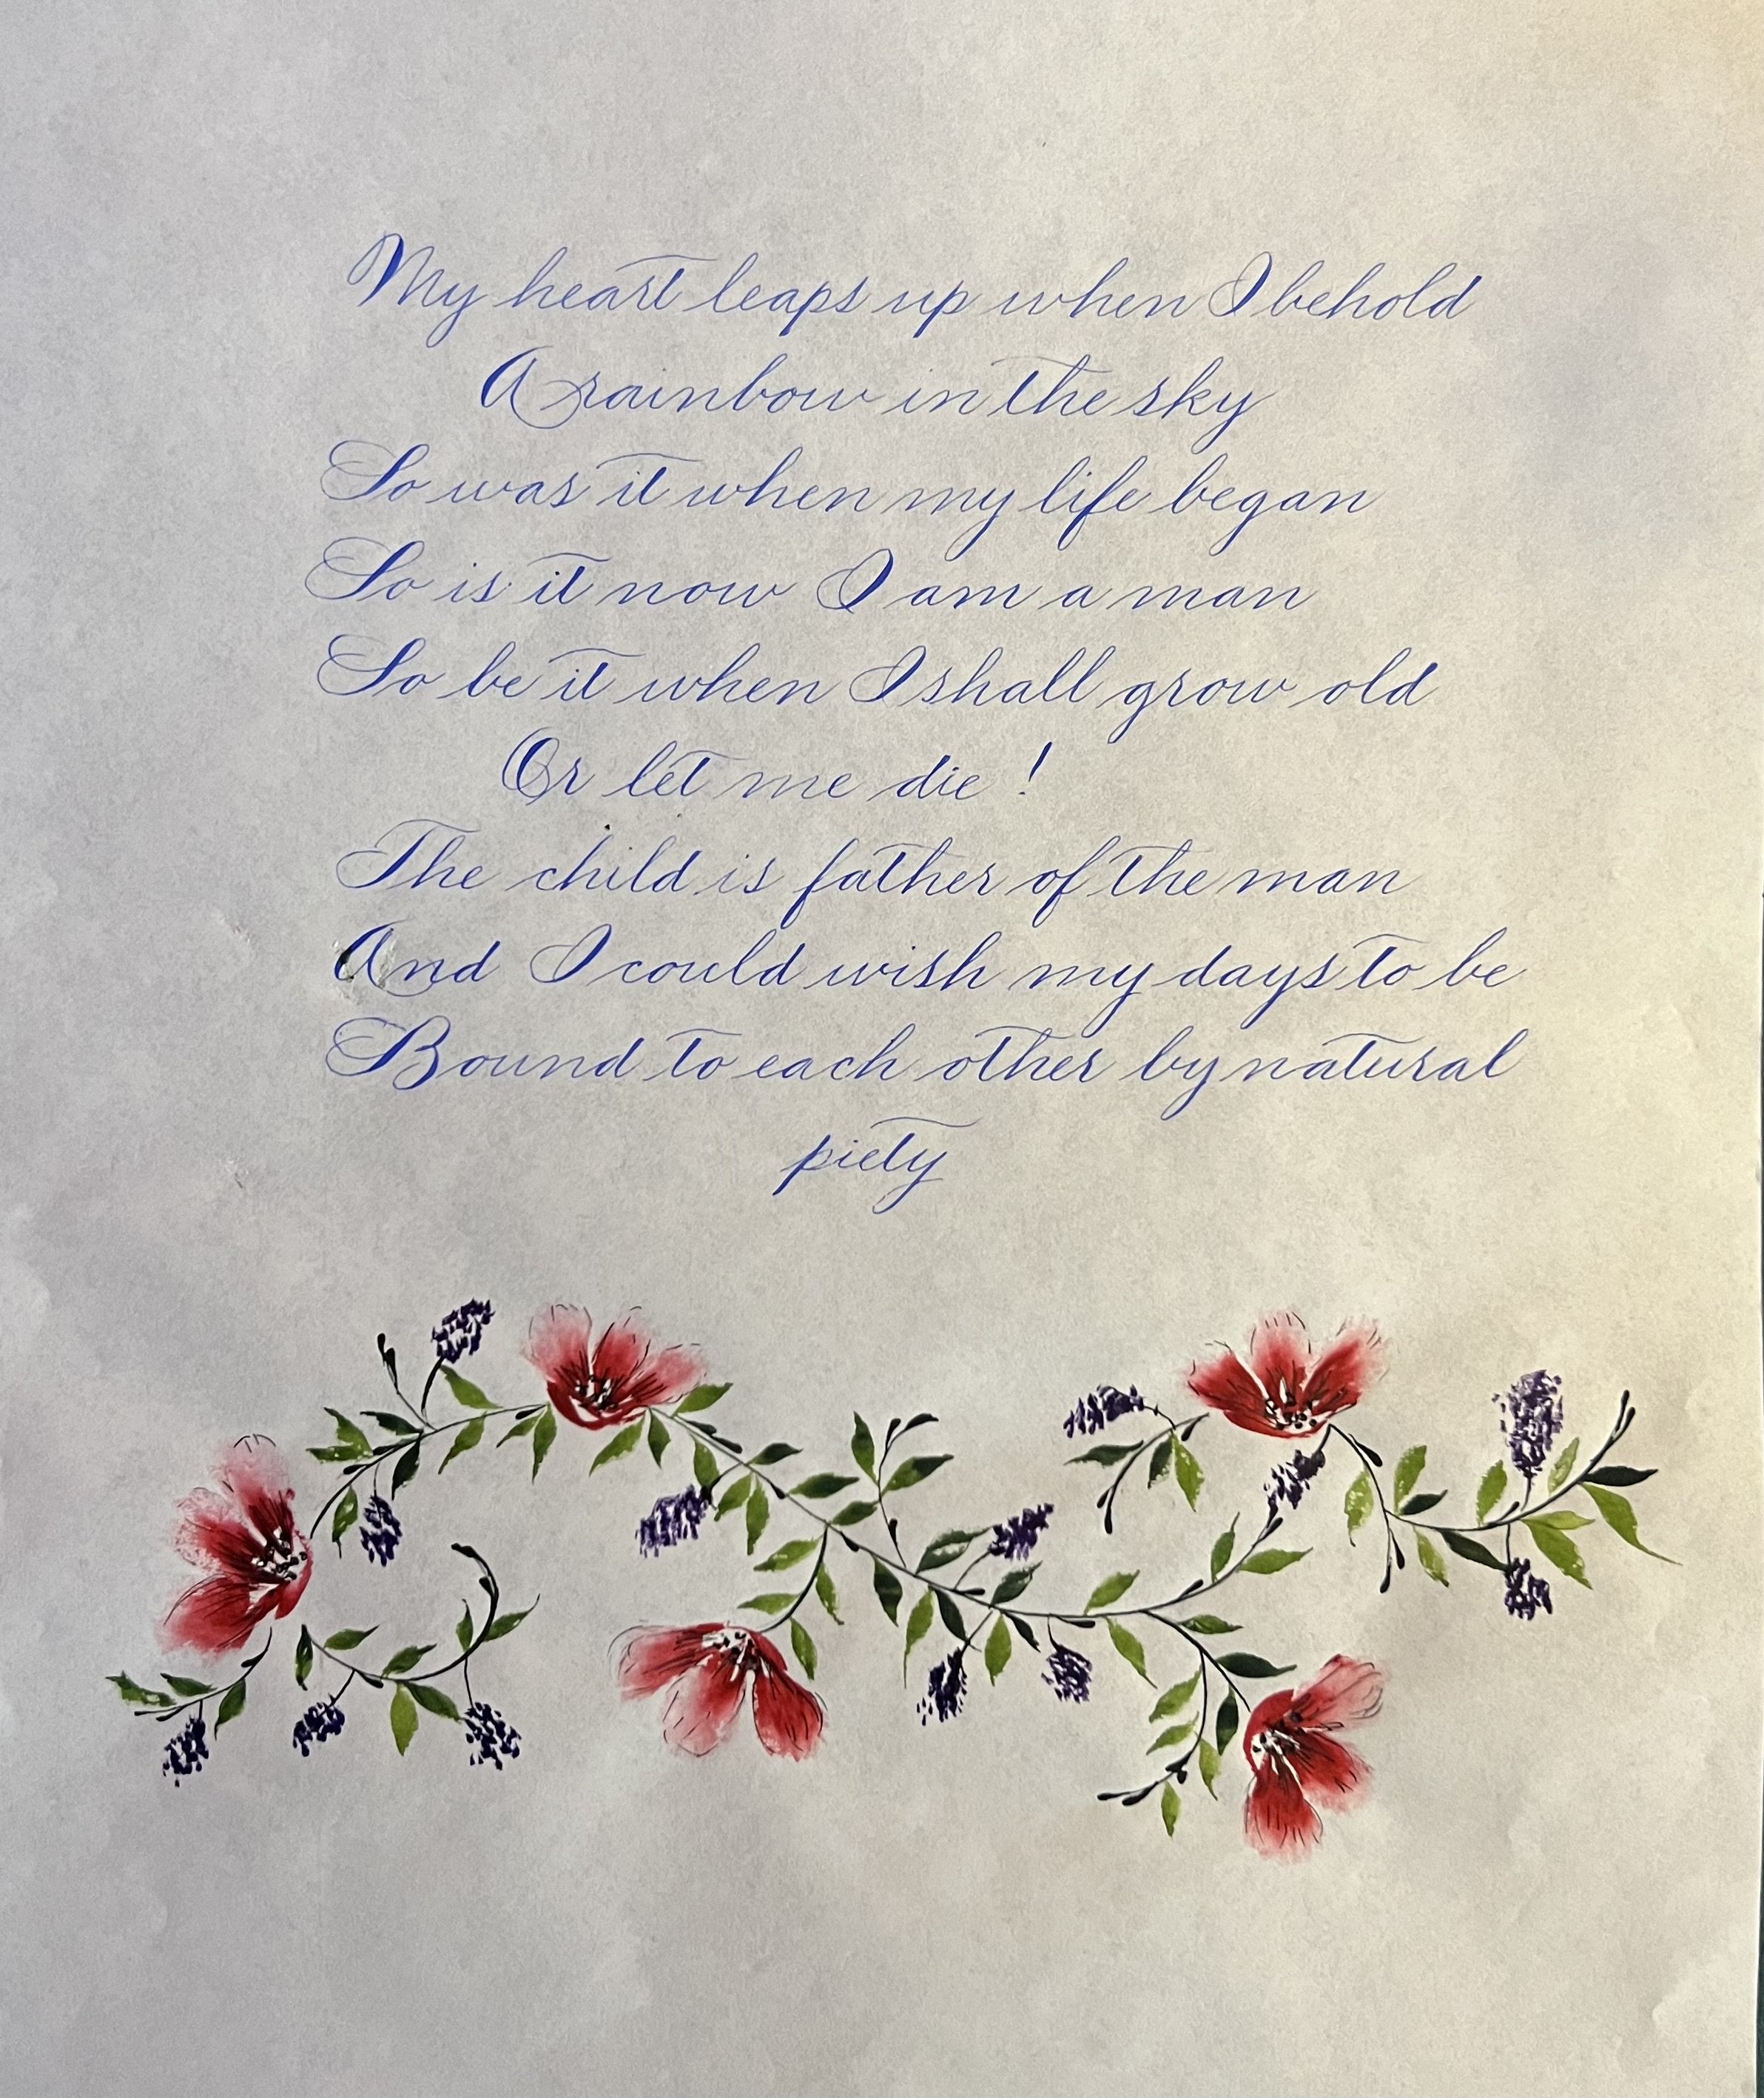 My heart leaps up when I behold
A rainbow in the sky
So was it when my life began
So is it now I am a man
So be it when I shall grow old
Or let me die !
The child is father of the man
And I could wish my days to be
Bound to each other by natural
piety